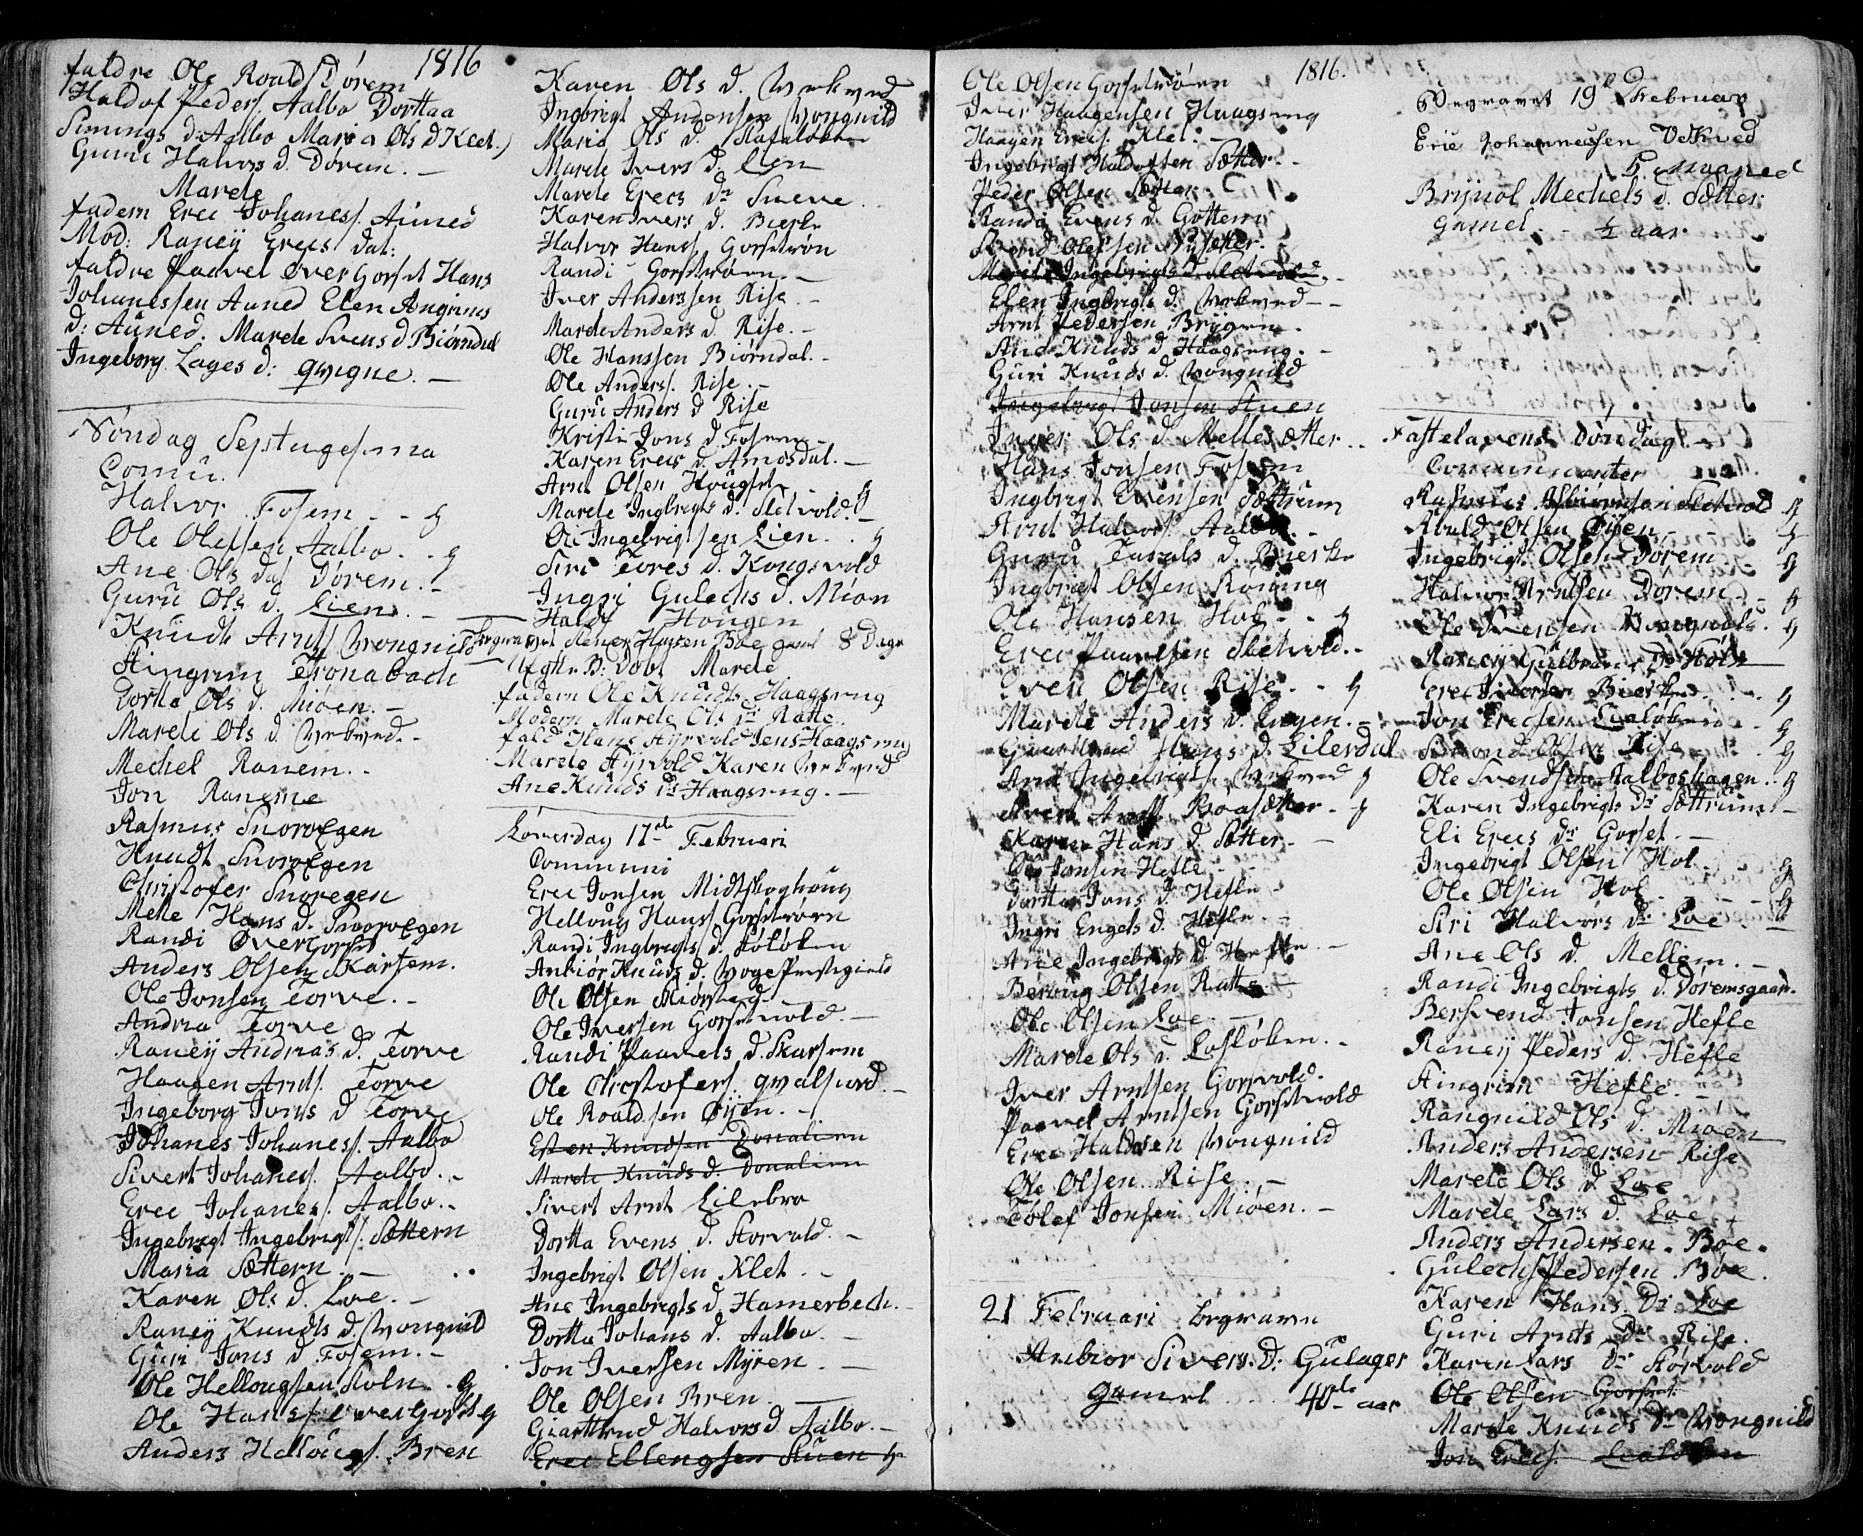 1816
faldre Ole Roalds. Dørem
Haldof Peders. Aalbo Dorttaa
Simings d: Aalbo Maria Ols d Klet.)
Guru Halvors d. Dørem. —
Marete
fadern Erec Johaness. Auned
Mod: Raney Erecs dat:
faldre Paavel Øvergorset Hans
Johanessen Auned Elen Angrims
d: Auned. Marete Svens d Biørndal
Ingeborg Lages d: qwigne. —
Søndag Septugesima
Comu.
Halvor Fosem - - g
Ole Olessen Aalbo. . g
Ane Ols dat Dørem. -
Guru Ols d. Lien. —
Knudt Arnts Wongnild
Hingrim Tronabach
Dorte Ols d. Miøen. —
Marete Ols d. Wekved. -
Mechel Ranem. -
Jon Raneme
Rasmus Snoroegen
Knudt Snoroegen
Christofer Snoregen
Mette Hans d. Snoroegen
Randi Overgorset
Anders Olsen Skarsem.
Ole Jonsen Torve. -
Andrea Torve
Raney Andreas d. Torve
Haagen Arnts. Torve
Ingeborg Jons d Torve
Johanes Johaness. Aalbo
Sivert Johaness. Aalbo. -
Erec Johaness. Aalbo. -
Ingebrigt Ingebrigts. Sættern
Maria Sættern. —
Karen Ols d. Loe. —
Raney Knudts d. Wongnild
Guri Jons d Fosem. —
Ole Hellougsen Holm. g
Ole Hanss. Overgorset g
Anders Hellougs. Bren
Karen Ols d. Wekved
Ingbrigt Andersen Wongnild
Maria Ols d.
Marete Ivers d. Lien
Marete Erecs dr Sneve.
Karen Ivers d. Bierke
Halvor Hans. Gorsetrøn
Randi Gorsetrøen. —
Iver Anderssen Rise. —
Marete Anders d. Rise. —
Ole Hanssen Biørndal. -
Ole Anders. Rise. -
Guru Anders d Rise
Kristi Jons d. Fosem -
Karen Erecs d. Amosdal. —
Arnt Olsen Hougset - g
Marete Ingbrigts d. Sletvold. —
Ole Ingebrigtsen Lien. . g
Siri Tores d. Kongsvold
Ingri Gulecks d. Miøn
Haldt Hougen
Begravet Stener Hansen Boe gaml 8 Dage
Ægte B: Døbt Marete
fadern Ole Knudts. Haagseng
Modern Marete Ols dr Ratte
fald Hans Hyrvold Jens Haagseng
Marete Hyrvold Karen Wekved
Ane Knuds dr Haagseng. —
Løverdag 17de Februari
Communi
Erec Jonsen Midtskoghoug
Helloug Hanss. Gorsetrøen
Randi Ingbrigts d. Løkløken
Anbiør Knuds d. Woge Prestegield
Ole Olsen Skiørstad. —
Ole Iversen Gorsetvold. —
Randi Paavels d. Skarsem
Ole Christofers. qwalsund. —
Ole Roaldsen Øyen. -
Esten Knudsen Donalien
Marete Knuds d. Donalien
Sivert Arnt Lilebro
Dortta Evens d. Storvold. —
Ingebrigt Olsen Klet. -
Ane Ingebrigts d. Hamerbech. —
Dortta Johans d. Aalbo. —
Jon Iverssen Myren. —
Ole Olsen Bren. —
Giarttrud Halvors d Aalbo. —
Erec Ellengsen Stuen g
1816.
Ole Olsen Gorsetrøen
Iver Haagensen Haagseng
Haagen Erecs. Klet. —
Ingebrigt Haldofsen Sætter. -
Peder Olsen Sætter
Randi Evens d. Gottem
Roald Olessen Nysætter.
Marete Ingebrigts d. Sletvold. —
Elen Ingbrigts d. Wekved - -
Arnt Pedersen Bryggen.
Ane Knuds d. Haagseng. —
Guri Knuds d. Wongnild
Ingebrigt Jonsen Stuen
Inger Ols d. Mellesætter. .
Hans Jonsen Fosem
Ingbrigt Evensen Sættrum
Arnt Halvors. Aalbo. -
Guru d. Bierke
Ingbrigt Olsen Roning
Ole Hansen Hol - . g
Erec Paavelsen Sletvold. -
Even Olsen Rise. - g
Marete Anders d. Engen. -
Giarttrud Hans d. Lilerdal
Arnt Ingebrigts. Wekved g
Arnt Boasætter - g
Karen Hans d. Sætter. -
Ole Jonsen Hefle. -
Dortte Jons d. Hefle
Ingri Engels d. Hefle. —
Ane Ingebrigts d. Hefle. —
Beroug Olsen Ratte —
Ole Olsen Loe. —
Marete Ols d. Losløken. -
Iver Arntsen Gorsetvold.
Paavel Arntsen Gorsetvold
Erec Haldosen Wongnild
Ole Olsen Rise. —
Tolef Jonsen Miøen. —
21 Februari begraven
Anbior Sivers. D: Gulager
gamel . . . 40de aar
Begravet 19de Februar
Eric Johannessen Vekved
5 Maaned
Brynol Mechels d. Sætter
Gamel. — ½ aar
Fastelavens Søndag
Communicanter
Rasmus Asbiørnsen Sletvold g
Roald Olsen Øyen g
Ingebrigt Olsen Dørem g
Halvor Arntsen Dørem. - g
Ole Svensen Wongnild. g
Raney Gulbrans Dr Hoel
Erec Iversen Bierke. - g
Jon Erecsen Losløken - g
Simond Olsen Rise - g
Ole Svendsen Aalboshagen. . g
Karen Ingebrigts dr Sættrum -
Eli Erecs dr Gorset. —
Ingebrigt Olsen Hol - g
Ole Olsen Hol - - g
Siri Halvors dr Loe. —
Ane Ols d. Mellem. —
Randi Ingebrigts d. Døremsgaar. —
Bersvend Jonsen Hefle
Raney Peders d. Hefle
Hingrim Hefle. —
Rangnild Ols d. Miøen
Anders Andersen Rise
Marete Ols d Loe
Marete Lars d. Loe. -
Anders Andersen. Boe.
Gulechs Pedersen Boe.
Karen Hans Dr Loe
Guri Arnts Dr Rise.
Karen Lars Dr Storvold
Ole Olsen Gorset
Marete Knuds Dr Wongnild
Jon Erecs. Losløken